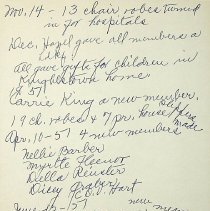 Nov. 14 - 13 chair robes turned
in for hospitals
Dec. Hazel gave all members a
gift
all gave gifts for children in
home
57
Carrie King a new member.
19 ch. robes & 7 pr. house slippers
made
Apr. 10-57 4 new members
Nellie Barber
Myrtle
Della
Daisy Graber
Hart
new